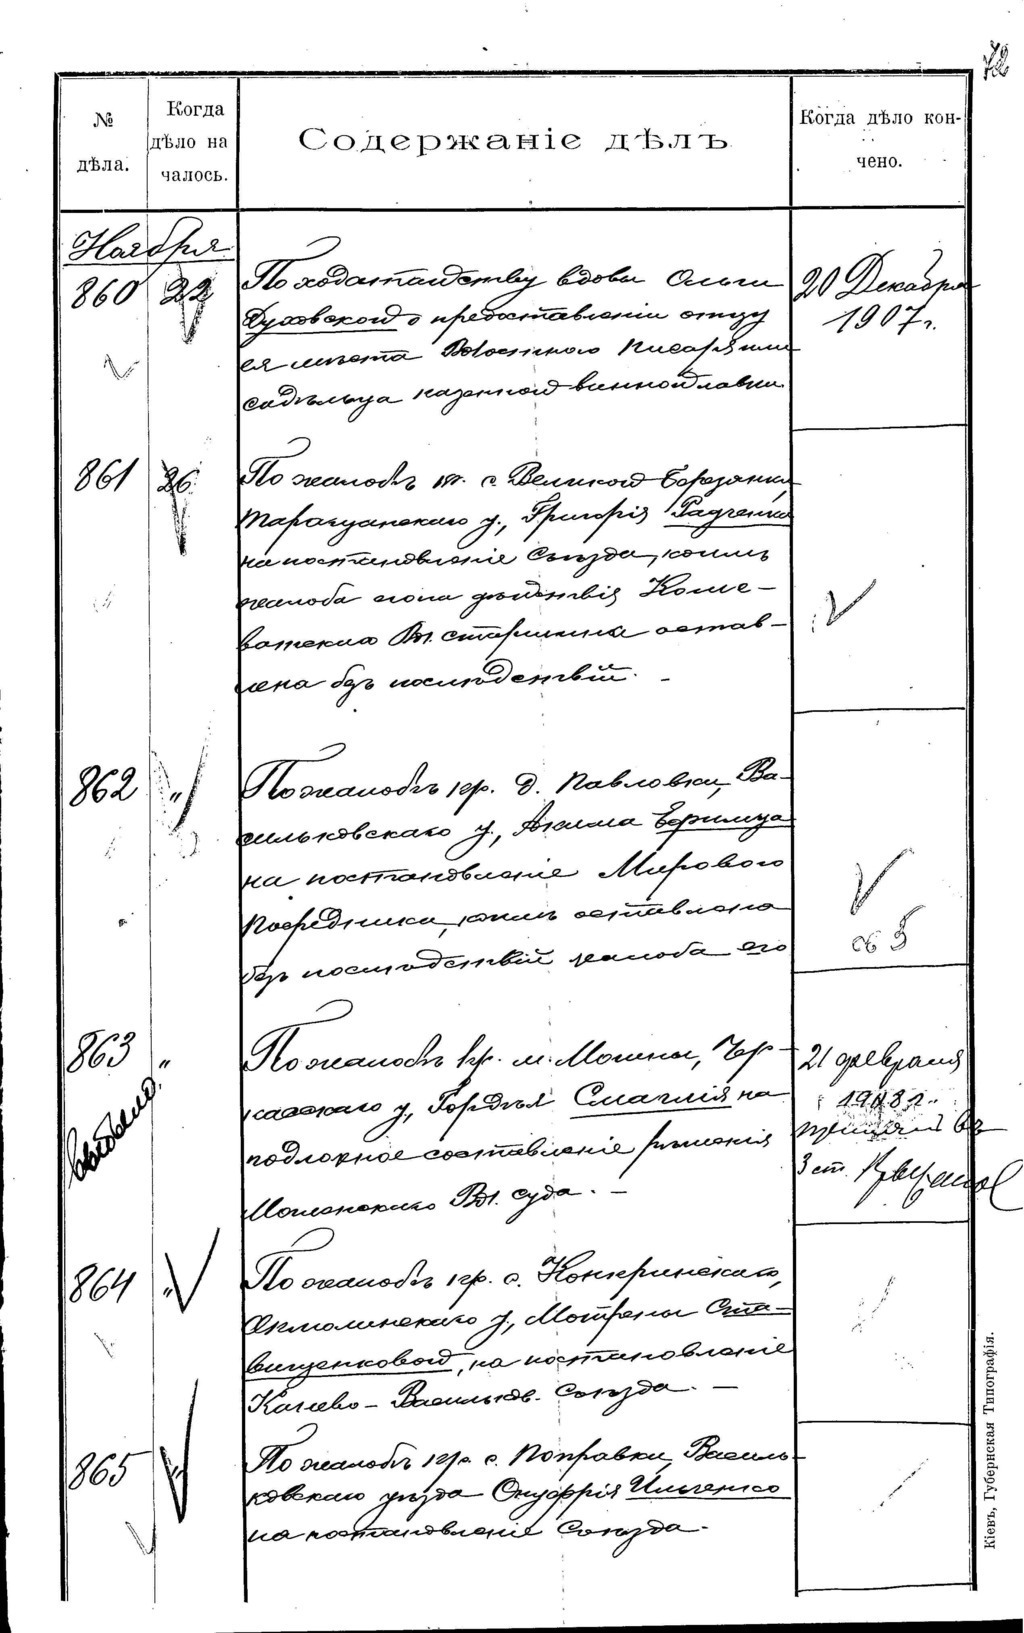 72
№ дѣла.
Когда дѣло началось.
Содержаніе дѣлъ
Когда дѣло кончено.
Ноября
860 22 По ходатайству вдовы Ольги
Духовской о предоставленіи отцу
ея мѣста Волостного писаря или
сидѣльца казенной винной лавки
20 Декабря
1907 г.
861 26 По жалобѣ кр. с. Великой Березянки,
Таращанскаго у., Григорія Радченка
на постановленіе Съѣзда, коимъ
жалоба его на дѣйствія
Вол. старшины остав-
лена безъ послѣдствій. –
862 " По жалобѣ кр. д. Павловки, Ва-
сильковскаго у., Акима Ефимца
на постановленіе Мирового
Посредника, коимъ оставлена
безъ послѣдствій жалоба его
863 " По жалобѣ кр. м. Мошны, Чер-
касскаго у., Гордѣя Смаглія на
подложное составленіе рѣшенія
Мошенскаго Вол. суда. –
21 февраля
1908 г.
3 ст.
864 " По жалобѣ кр. с.
у., Мотрены Ста-
вищенковой, на постановленіе
Кіево-Васильков. Съѣзда. –
865 " По жалобѣ кр. с. Поправки, Василь-
ковскаго уѣзда Онуфрія Ильченко
на постановленіе Съѣзда. –
Кіевъ, Губернская Типографія.